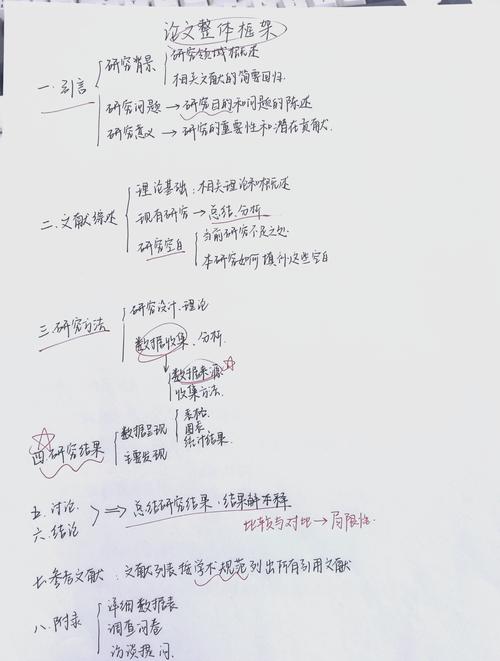 论文整体框架
一.引言
研究背景
研究领域概述
相关文献的简要回归
研究问题→研究目的和问题的陈述
研究意义→研究的重要性和潜在贡献.
二.文献综述
理论基础:相关理论和概述
现有研究→总结.分析
研究空白
当前研究不足之处
本研究如何填补这些空白
三.研究方法
研究设计.理论
数据收集.分析.
数据来源☆
收集方法.
☆
四.研究结果
数据呈现
表格
图表
统计结果.
主要发现
五.讨论.
六.结论
⇒总结研究结果.结果解释
比较与对比→局限性.
七.参考文献:文献列表按学术规范列出所有引用文献
八.附录
详细数据表
调查问卷
访谈提问.